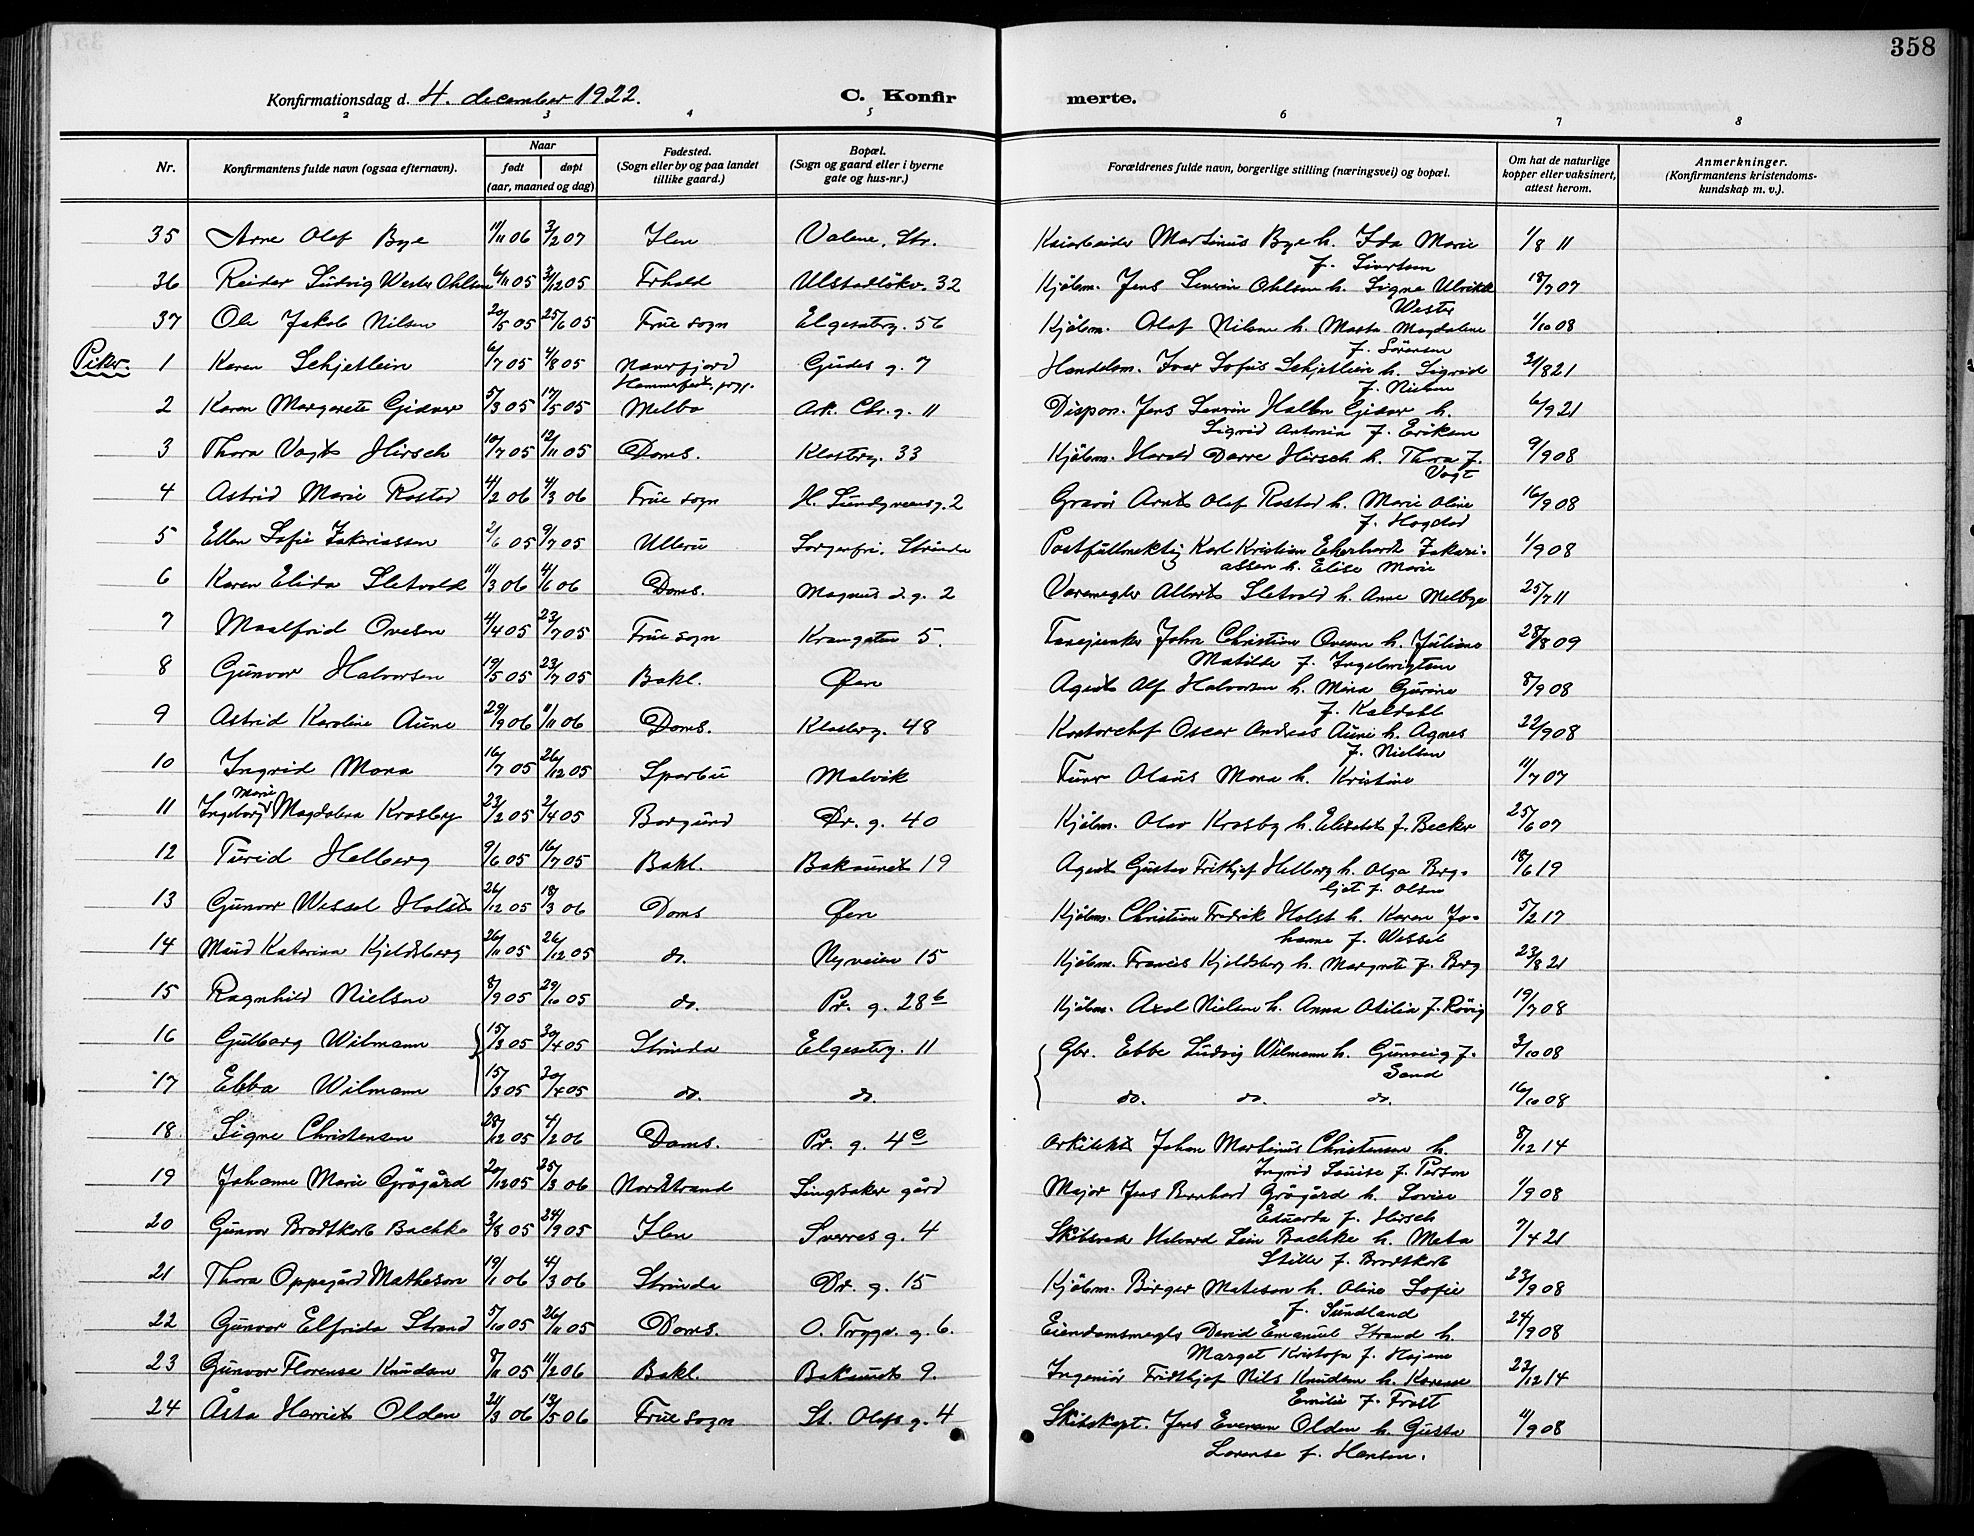 358
Konfirmationsdag d. 4. december 1922.
C. Konfir
merte.
2 3 4 5 6 7 8
Nr. Konfirmantens fulde navn (ogsaa efternavn). Naar født døpt (aar, maaned og dag) Fødested. (Sogn eller by og paa landet tillike gaard.) Bopæl. (Sogn og gaard eller i byerne gate og hus-nr.) Forældrenes fulde navn, borgerlige stilling (næringsvei) og bopæl. Om hat de naturlige kopper eller vaksinert, attest herom. Anmerkninger. (Konfirmantens kristendomskundskap m. v.).
35 Arne Olaf Bye 11/11 06 3/2 07 Ilen Valene, Str. Kaiarbeider Martinus Bye h. Ida Marie 1/8 11
f. Sivertsen
36 Reidar Ludvig Wester Ohlsen 6/11 05 31/12 05 Frhald Ulstadløkv. 32 Kjøbm. Jens Severin Ohlsen h. Signe Ulrikke 18/7 07
Wester
37 Ole Jakob Nilsen 20/5 05 25/6 05 Frue sogn Elgesæterg. 56 Kjøbm. Olaf Nilsen h. Marta Magdalene 1/10 08
f. Sørensen
Piker. 1 Karen Schjetlein 6/7 05 4/8 05 Naverfjord Gudes g. 7 Handelsm. Ivar Sofus Schjetlein h. Sigrid 31/8 21
Hammerfest prgj. f. Nielsen
2 Karen Margarete Gidver 5/3 05 17/5 05 Melbo Ark. Chr. g. 11 Dispon. Jens Severin Hallen Gidver h. 6/9 21
Sigrid Antonia f. Eriksen
3 Thora Vogt Hirsch 10/7 05 12/11 05 Doms. Klosterg. 33 Kjøbm. Harald Darre Hirsch h. Thora f. 9/9 08
Vogt
4 Astrid Marie Rostad 4/2 06 4/3 06 Frue sogn H. Lundgreensg. 2 Gravør Arnt Olaf Rostad h. Marie Oline 16/9 08
f. Hogstad
5 Ellen Sofie Zakariassen 2/6 05 9/7 05 Ullerü Sorgenfri, Strinda Postfullmektig Karl Kristian Eherhardt Zakari- 1/9 08
assen h. Elise Marie
6 Karen Elida Sletvold 11/3 06 4/6 06 Doms. Magnus d. g. 2 Varemegler Albert Sletvold h. Anne Melbye 25/7 11
7 Maalfrid Ovesen 4/4 05 23/7 05 Frue sogn Krangaten 5. John Christian Ovesen h. Juliane 28/8 09
Matilde f. Ingebrigtsen
8 Gunvor Halvorsen 19/5 05 23/7 05 Bakl. Øen Agent Alf Halvorsen h. Mina Gurine 8/9 08
f. Kaldahl
9 Astrid Karoline Aune 29/9 06 11/11 06 Doms. Klosterg. 48 Kontorchef Oscar Andreas Aune h. Agnes 22/9 08
f. Nielsen
10 Ingrid Mona 16/7 05 26/12 05 Sparbu Malvik Olaus Mona h. Kristine 11/7 07
11 Ingeborg Marie Magdalena Krosby 23/2 05 2/4 05 Borgund Dr. g. 40 Kjøbm. Olav Krosby h. Elisabet f. Becker 25/6 07
12 Turid Helberg 9/6 05 16/7 05 Bakl. Baksundet 19 Agent Gustav Fritjof Helberg h. Olga Berg- 18/6 19
ljot f. Olsen
13 Gunvor Wessel Holst 26/12 05 18/3 06 Doms Øen Kjøbm. Christian Fredrik Holst h. Karen Jo- 5/2 17
hanne f. Wessel
14 Maud Katarina Kjeldsberg 26/11 05 26/12 05 do. Nyveien 15 Kjøbm. Francis Kjeldsberg h. Margrete f. Berg 23/8 21
15 Ragnhild Nielsen 8/9 05 29/10 05 do. Pr. g. 28 b Kjøbm. Axel Nielsen h. Anna Otilia f. Røvig 19/7 08
16 Gulborg Wilmann 15/3 05 30/4 05 Strinda Elgeseterg. 11 Gbr. Ebbe Ludvig Wilmann h. Gunveig f. 3/10 08
Sand
17 Ebba Wilmann 15/3 05 30/4 05 do. do. do. do. do. 16/10 08
18 Signe Christensen 28/12 05 4/2 06 Doms. Pr. g. 4 c Arkitekt Johan Martinus Christensen h. 8/12 14
Ingrid Louise f. Person
19 Johanne Marie Grøgård 20/12 05 25/3 06 Nordstrand Singsaker gård Major Jens Bernhard Grøgård h. Lovise 1/9 08
Eduarda f. Hirsch
20 Gunvor Brodtkorb Bachke 3/8 05 24/9 05 Ilen Sverres g. 4 Skibsred Halvard Lein Bachke h. Meta 7/4 21
Stille f. Brodtkorb
21 Thora Oppegård Matheson 19/1 06 4/3 06 Strinda Dr. g. 15 Kjøbm. Birger Mateson h. Oline Sofie 23/9 08
f. Sundland
22 Gunvor Elfrida Strand 5/10 05 26/11 05 Doms. O. Trygv. g. 6. Eiendomsmegler David Emanuel Strand h. 24/9 08
Marget Kristofa f. Højem
23 Gunvor Florense Knudsen 8/11 05 11/2 06 Bakl. Baksundet 9. Ingeniør Fridthjof Nils Knudsen h. Karense 23/12 14
Emilie f. Frost
24 Åsta Harriet Olden 21/3 06 13/5 06 Frue sogn St. Olafs g. 4 Skibskapt. Jens Evensen Olden h. Gusta 11/9 08
Lorense f. Hansen.